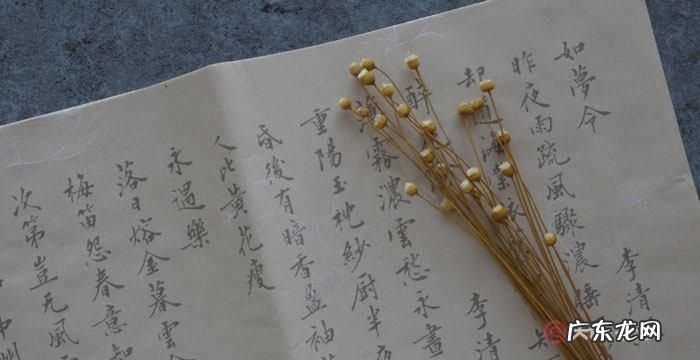 如夢令 李清
昨夜雨疏風驟濃睡
却道海棠依
醉 李清
薄霧濃雲愁永晝
重陽玉枕紗厨半夜
昏後有暗香盈袖
人比黃花瘦
永遇樂
落日熔金暮雲
梅笛怨春意知
次第豈无風
中州
广东龙网